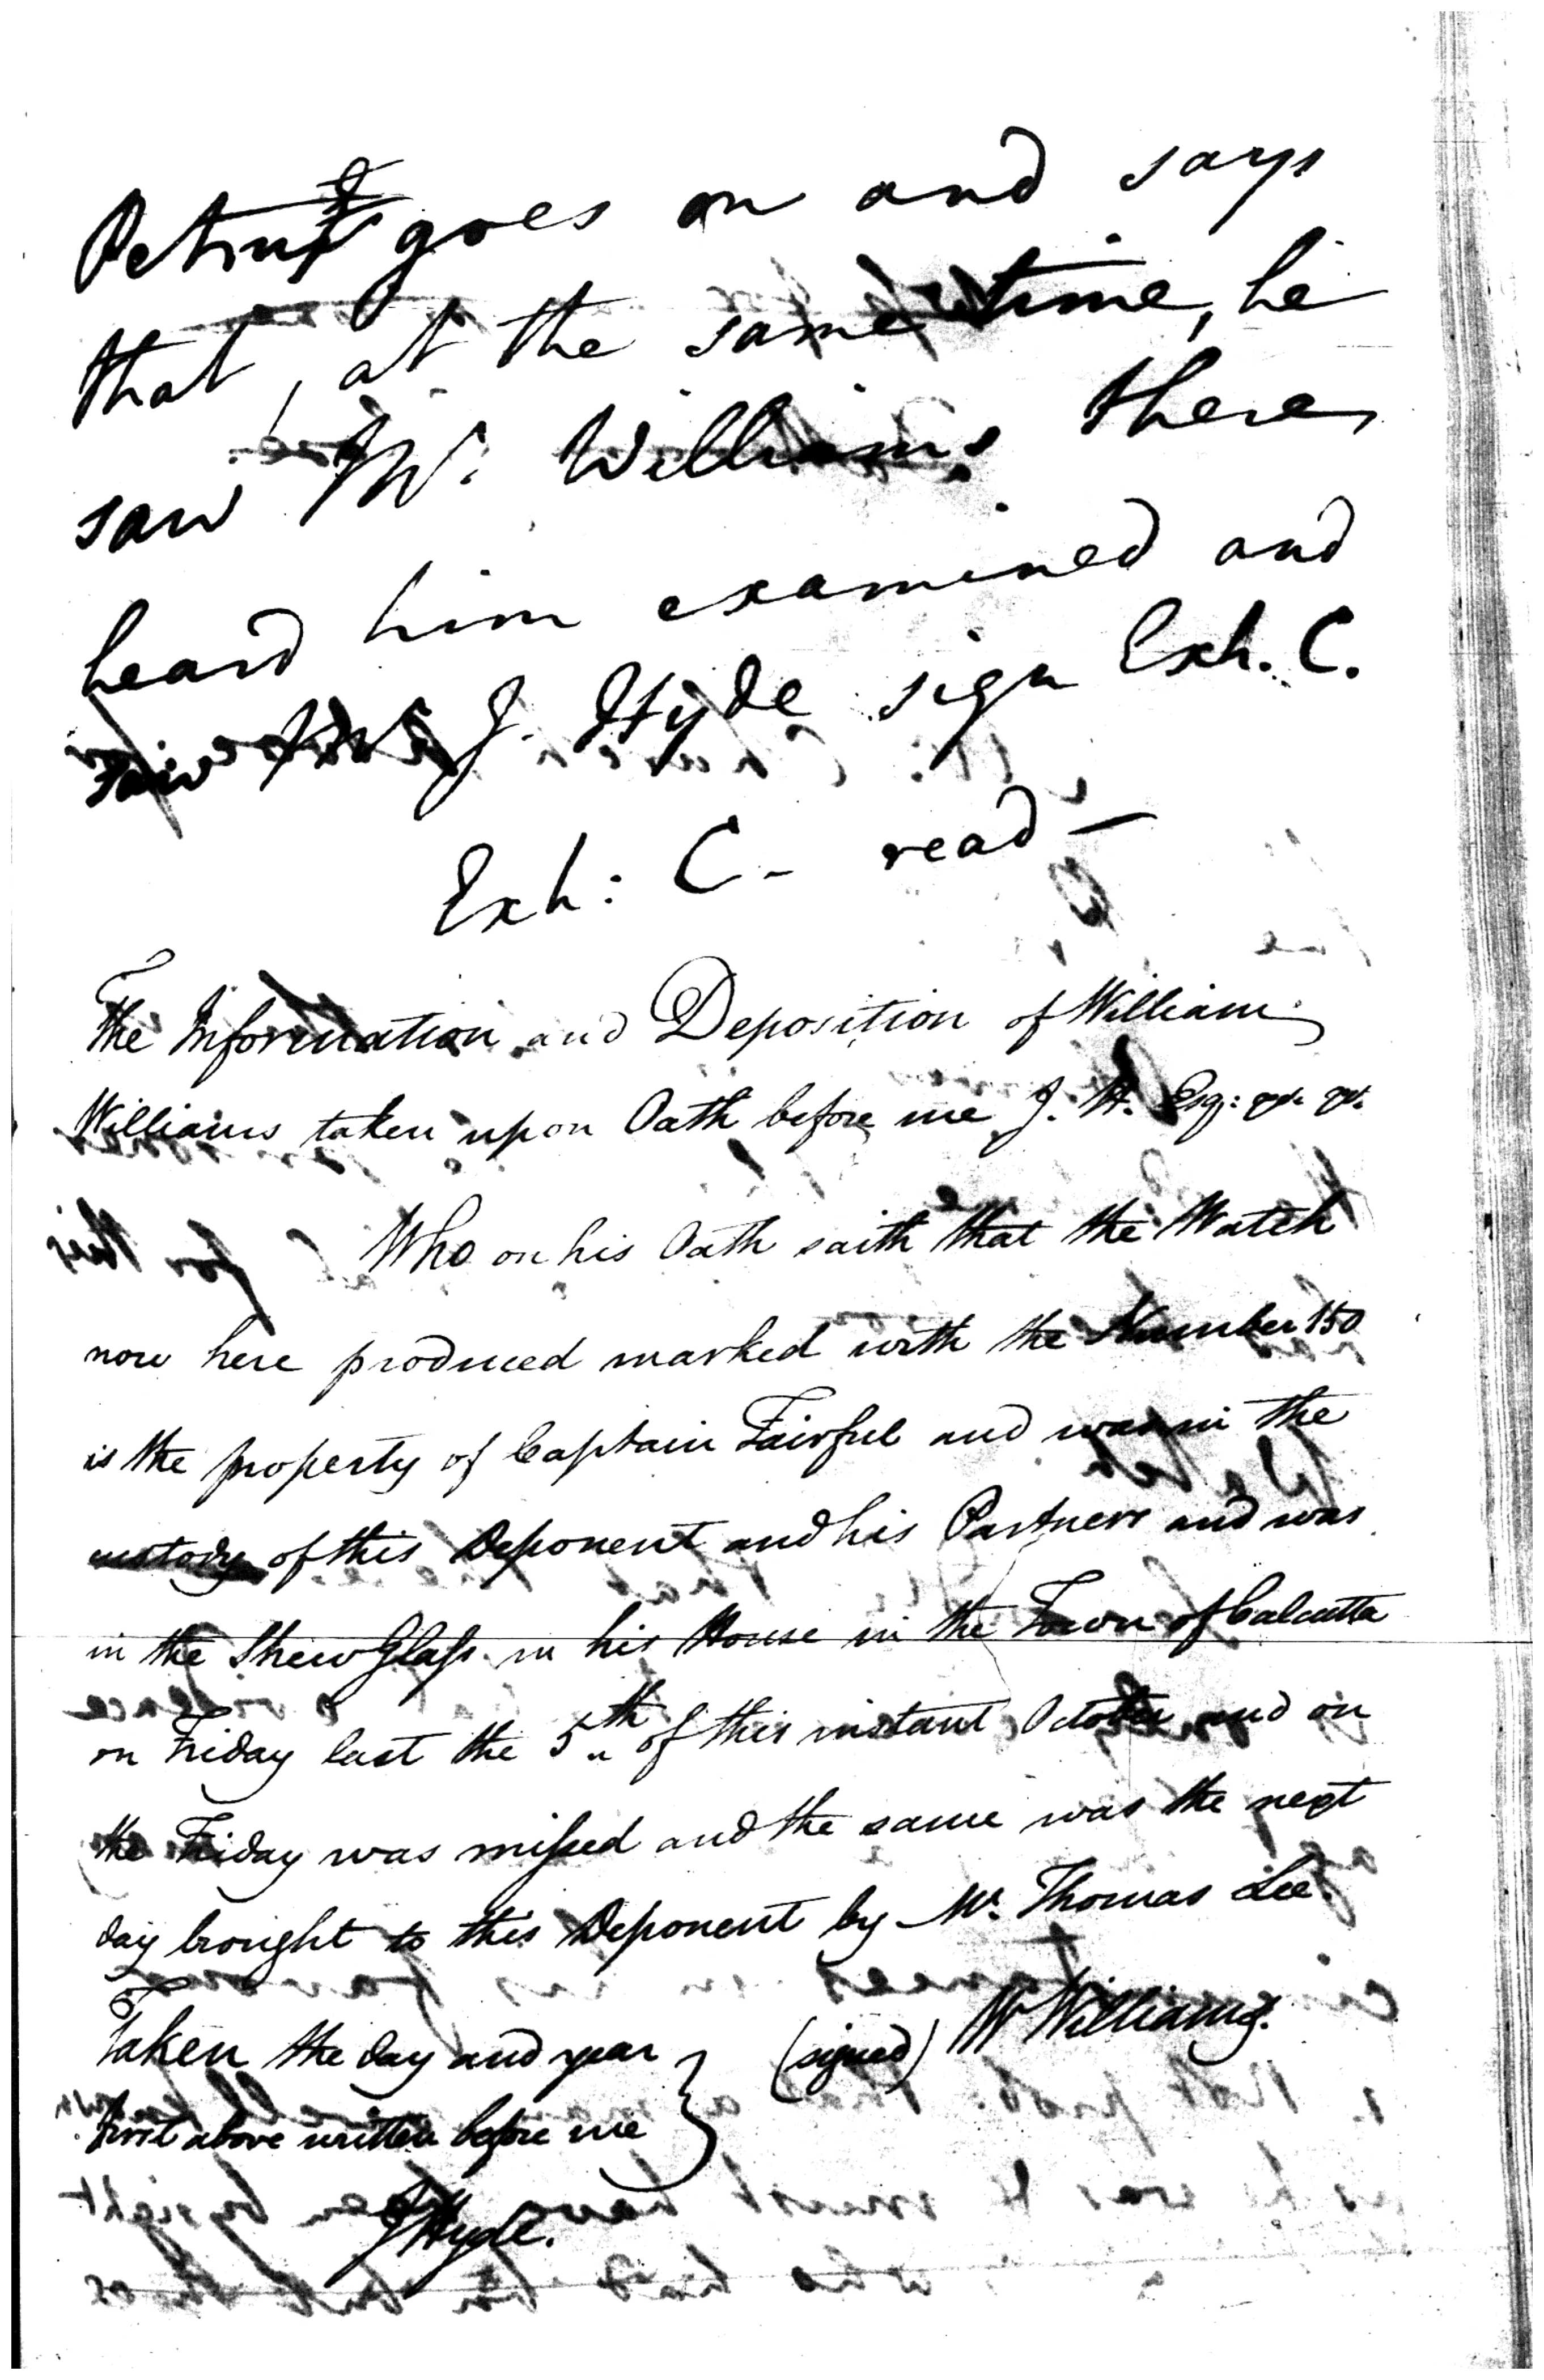 Petrus goes on and says
that, at the same time, he
saw Mr. Williams there,
heard him examined and
saw Mr. J. Hyde sign Exh. C.
Exh: C - read -
The Information and Deposition of William
Williams taken upon Oath before me J. H. Esq:
Who on his Oath saith that the Watch
now here produced marked with the Number 150
is the property of Captain Fairful and was in the
custody of this Deponent and his Partners and was
in the Shew Glass in his House in the Town of Calcutta
on Friday last the 5th of this instant October and on
the Friday was missed and the same was the next
day brought to this Deponent by Mr. Thomas Lee.
(signed) W Williams.
Taken the day and year
first above written before me
J Hyde.